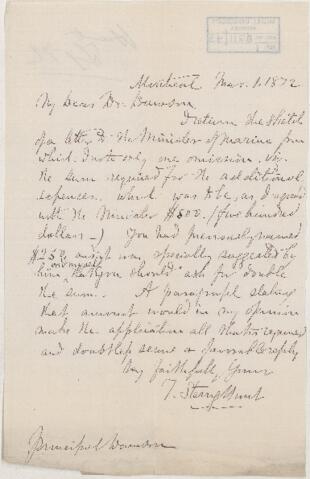 Montreal Mar. 1. 1872
My Dear Dr. Dawson
I return the sketch
of a letter to the Minister of Marine from
which I note only one omission. viz.
the sum required for the additional
expenses. which was to be, as I agreed
with the Minister $500. (five hundred
dollars —) You had previously named
$250. and it was specially suggested by
him and myself that you should ask for double
the sum. A paragraph stating
that amount would in my opinion
make the application all that is required
and doubtless secure a favorable reply
Very faithfully Yours
T. Sterry Hunt
Principal Dawson